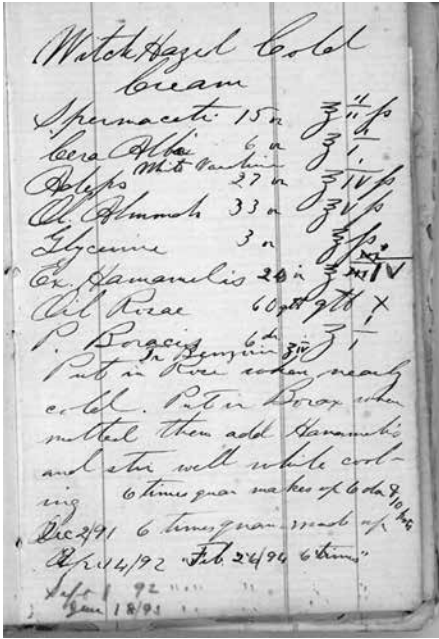 Witch Hazel Cold
Cream
Spermaceti 15 oz ℥ iiss
Cera Alba 6 oz ℥ i
White Vaseline
Adeps 27 oz ℥ ivss
Ol. Almonds 33 oz ℥ vss
Glycerine 3 oz ℥ ss
Ex. Hamamelis 24 oz ℥ iv
Oil Rosae 60 gtt gtt x
P. Boracis 6 dr ʒ i
Tr Benzoin ℥ iv
Put in Rose when nearly
cold. Put in Borax when
melted then add Hamamelis
and stir well while cool-
ing 6 times quan makes up 6 doz &
Dec 2/91 6 times quan made up
Apr 14/92 "Feb. 24/94 6 times"
Sept 1 92
June 18/93